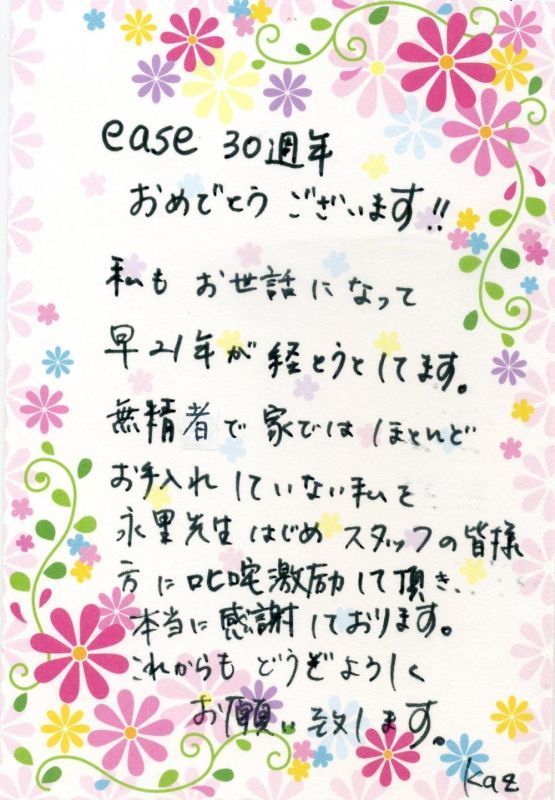 ease 30週年
おめでとうございます!!
私もお世話になって
早21年が経とうとしてます。
無精者で家ではほとんど
お手入れしていない私を
永里先生はじめスタッフの皆様
方に叱咤激励して頂き、
本当に感謝しております。
これからもどうぞようしく
お願い致します。
kaz